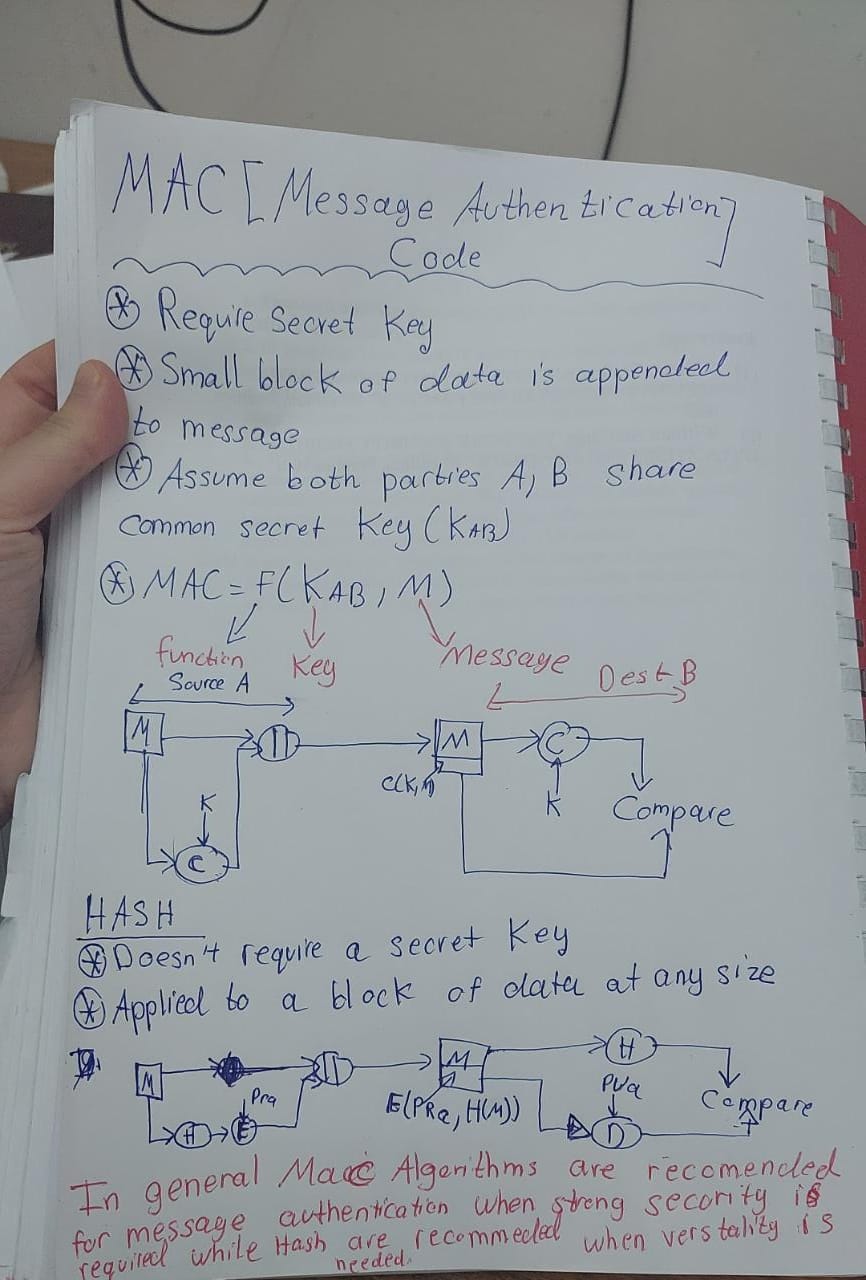 MAC [Message Authentication]
Code
Require Secret Key
Small block of data is appended
to message
Assume both parties A, B share
Common secret Key (KAB)
MAC = F(KAB, M)
function Key Message
Source A Dest B
M || M C
C(K,M)
K K Compare
C
HASH
Doesn't require a secret Key
Applied to a block of data at any size
M || M H
PRa E(PRa, H(M)) PUa Compare
H E D
In general Mac Algorithms are recomended
for message authentication when strong security is
required while Hash are recommeded when verstality is
needed.